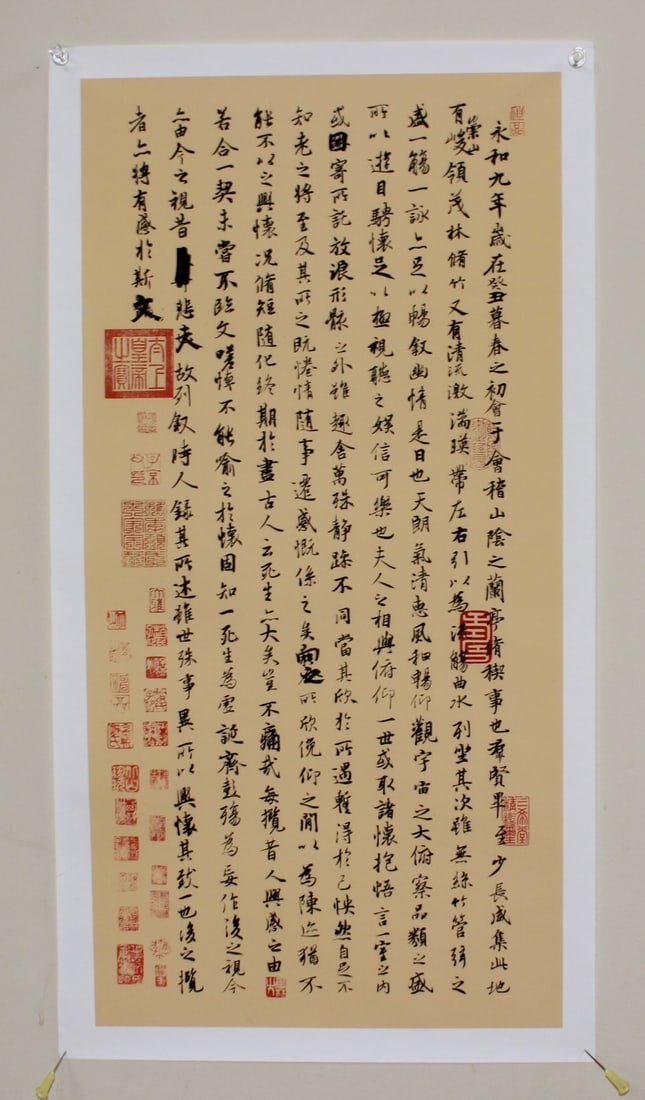 永和九年歲在癸丑暮春之初會于會稽山陰之蘭亭脩稧事也羣賢畢至少長咸集此地
有崇山峻領茂林脩竹又有清流激湍暎帶左右引以為流觴曲水列坐其次雖無絲竹管弦之
盛一觴一詠亦足以暢敘幽情是日也天朗氣清惠風和暢仰觀宇宙之大俯察品類之盛
所以遊目騁懷足以極視聽之娛信可樂也夫人之相與俯仰一世或取諸懷抱悟言一室之內
或因寄所託放浪形骸之外雖趣舍萬殊靜躁不同當其欣於所遇暫得於己怏然自足不
知老之將至及其所之既惓情隨事遷感慨係之矣向之所欣俛仰之間以為陳迹猶不
能不以之興懷況脩短隨化終期於盡古人云死生亦大矣豈不痛哉每攬昔人興感之由
若合一契未嘗不臨文嗟悼不能喻之於懷固知一死生為虛誕齊彭殤為妄作後之視今
亦由今之視昔悲夫故列敘時人錄其所述雖世殊事異所以興懷其致一也後之攬
者亦將有感於斯文
太上皇帝之寶